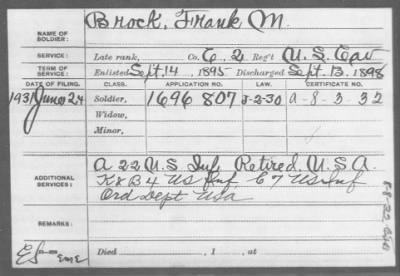 NAME OF SOLDIER: Brock, Frank M.
SERVICE: Late rank, Co. C, 2 Reg't U.S. Cav
TERM OF SERVICE: Enlisted Sept. 14, 1895 Discharged Sept. 13, 1898
DATE OF FILING. CLASS. APPLICATION NO. LAW. CERTIFICATE NO.
1931 June 24 Soldier, 1696807 A-8-3-32
Widow,
Minor,
ADDITIONAL SERVICES: A 22 U.S. Inf Retired U.S.A.
K & B 4 US Inf C 7 US Inf
Ord Dept USA
REMARKS:
Died , 1 , at